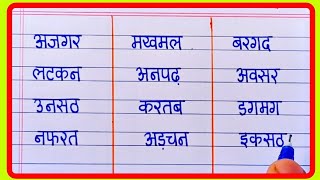 अजगर मखमल बरगद
लटकन अनपढ़ अवसर
उनसठ करतब डगमग
नफरत अड़चन इकसठ